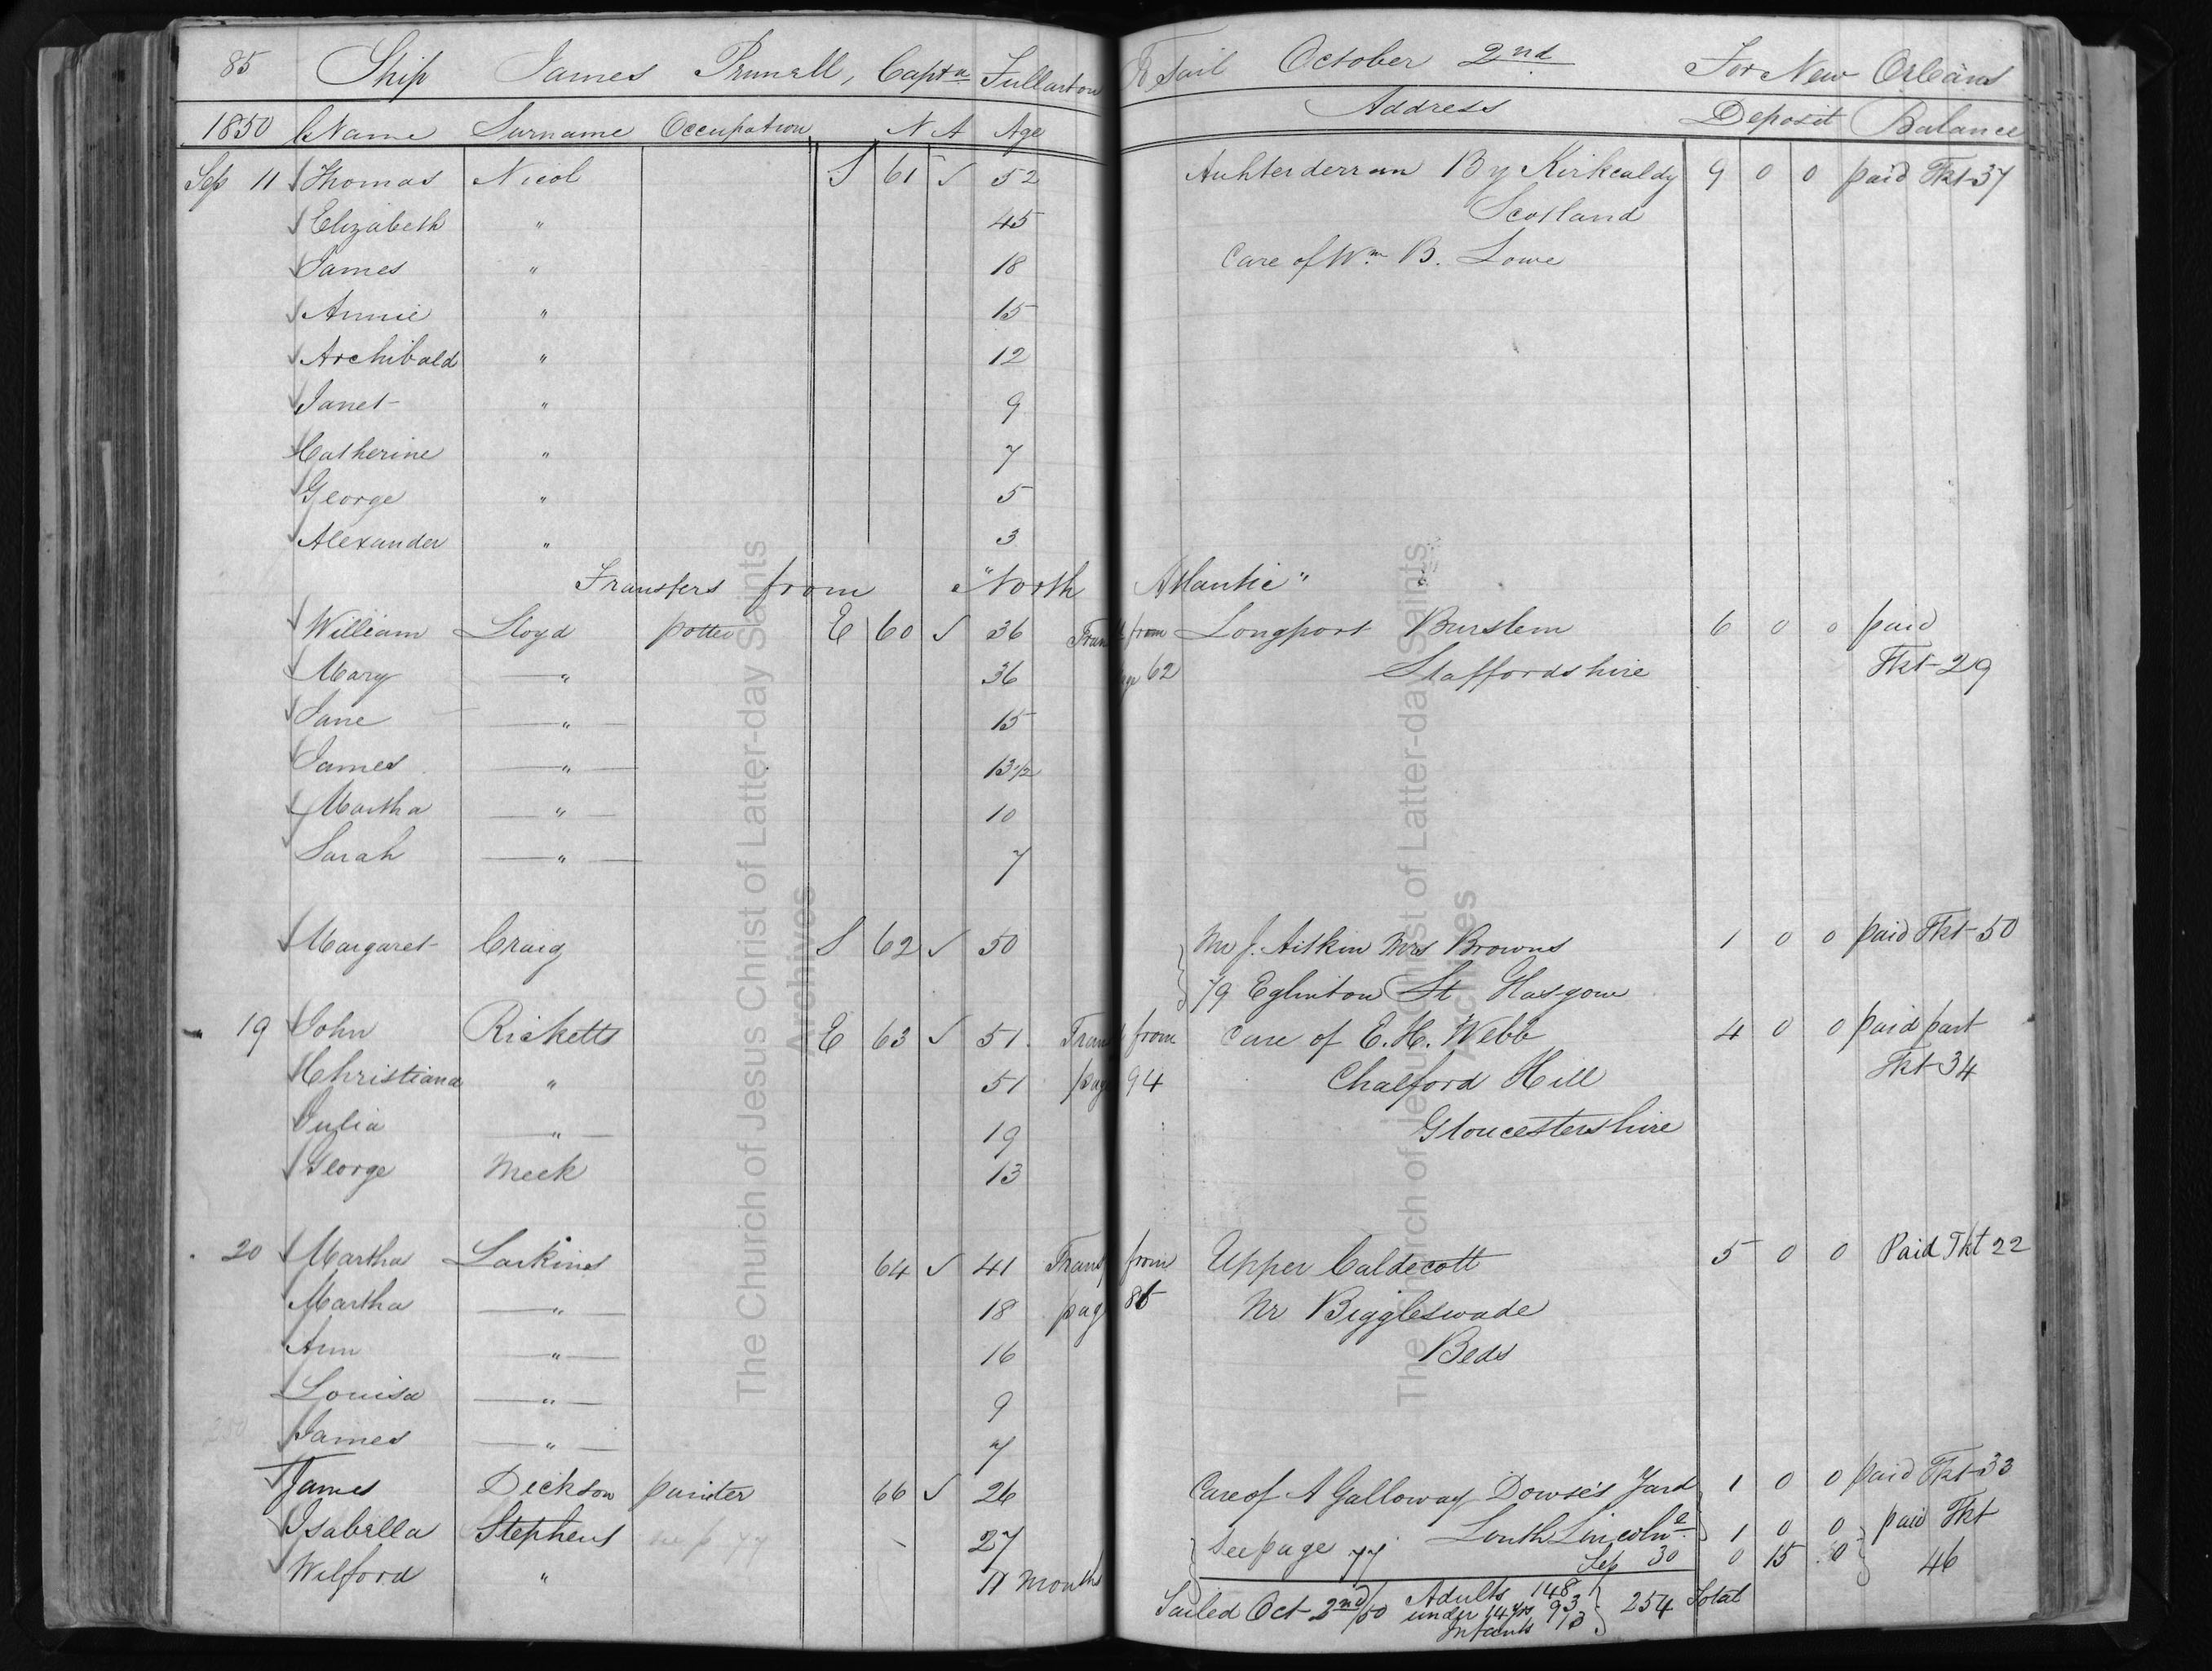 85 Ship James Pennell, Captn Fullarton To Sail October 2nd For New Orleans
1850 Name Surname Occupation N A Age Address Deposit Balance
Sep 11 Thomas Nicol S 61 ✓ 52 Auhterderran By Kirkcaldy 9 0 0 paid Tkt 37
Elizabeth " 45 Scotland
James " 18 Care of Wm B. Lowe
Annie " 15
Archibald " 12
Janet " 9
Catherine " 7
George " 5
Alexander " 3
Transfers from "North Atlantic"
William Lloyd potter E 60 ✓ 36 from Longport Burslem 6 0 0 paid
Mary " 36 62 Staffordshire Tkt 29
Jane " 15
James " 13 1/2
Martha " 10
Sarah " 7
Margaret Craig S 62 ✓ 50 Mr J. Aitkin Mrs Browns 1 0 0 paid Tkt 50
79 Eglinton St Glasgow
19 John Ricketts E 63 ✓ 51 from Care of E. H. Webb 4 0 0 paid part
Christiana " 51 page 94 Chalford Hill Tkt 34
Julia " 19 Gloucestershire
George Meek 13
20 Martha Larkins 64 ✓ 41 from Upper Caldecott 5 0 0 Paid Tkt 22
Martha " 18 page Nr Biggleswade
Ann " 16 Beds
Louisa " 9
James " 7
James Dickson painter 66 ✓ 26 Care of A Galloway Dowse's Yard 1 0 0 paid Tkt 33
Isabella Stephens see p 77 27 See page 77 Louth Lincolne 1 0 0 paid Tkt
Wilford " 11 months Sep 30 0 15 0 46
Sailed Oct 2nd/50 Adults 148 254 Total
under 14 yrs 93
Infants 13
The Church of Jesus Christ of Latter-day Saints
Archives
The Church of Jesus Christ of Latter-day Saints
Archives